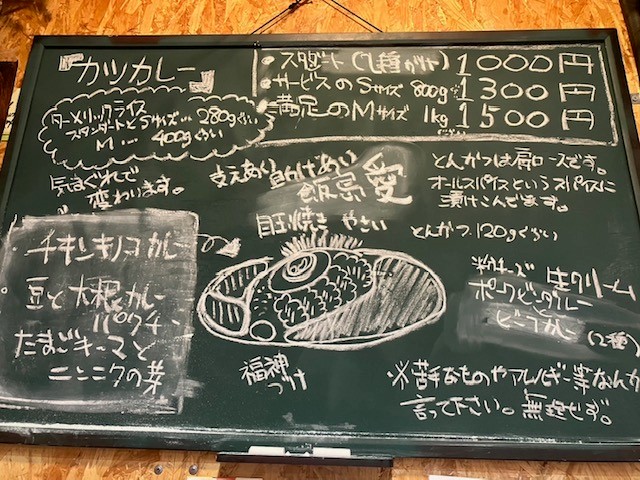 『カツカレー』
・スタンダート(1種がけ) 1000円
・サービスのSサイズ 800g 1300円
・満足のMサイズ 1kg 1500円
ターメリックライス
スタンダートとSサイズ… 280gぐらい
M … 400gぐらい
気まぐれで
変わります。
支えあい 負けじあい
飯島愛
目玉焼き やさい
とんかつは肩ロースです。
オールスパイスというスパイスに
漬けこんでます。
とんかつ 120gぐらい
チキンキノコカレー
豆と大根カレー
パクチー
たまごキーマと
ニンニクの芽
福神
づけ
粉チーズ 生クリーム
ポークビンダルー
と
ビーフカレー
(2種)
※苦手なものやアレルギー等なんか
言って下さい。無理せず。